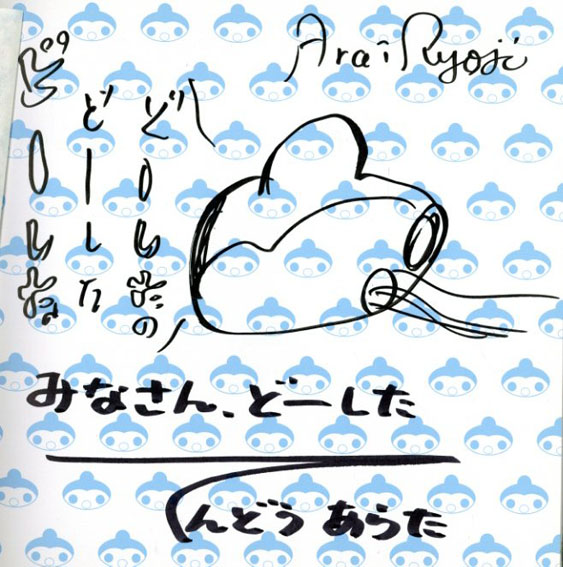 Arai Ryoji
どーしたの
どーした
どーした
みなさん、どーした
てんどう あらた